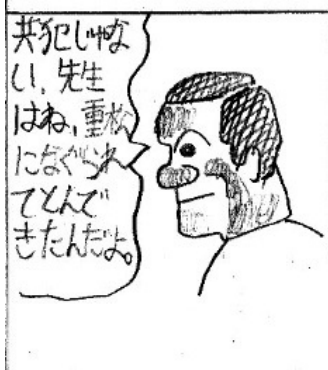 共犯じゃな
い、先生
はね、重松
になぐられ
てとんで
きたんだよ。